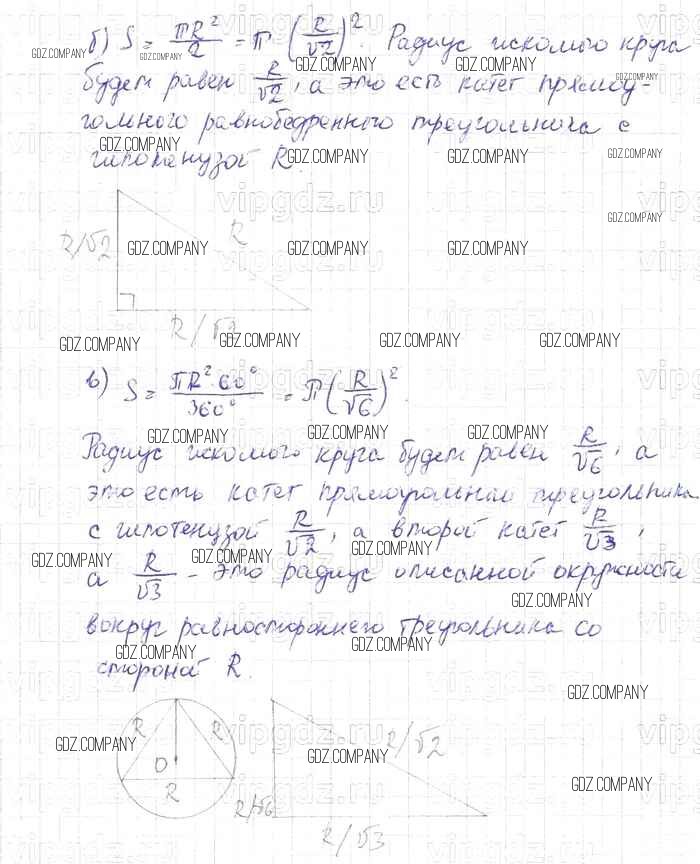 б) S = πR²/2 = π (R/√2)². Радиус искомого круга
будет равен R/√2, а это есть катет прямоу-
гольного равнобедренного треугольника с
гипотенузой R.
R/√2
R
R/√2
в) S = πR²·60°/360° = π(R/√6)².
Радиус искомого круга будет равен R/√6, а
это есть катет прямоугольный треугольника
с гипотенузой R/√2, а второй катет R/√3,
а R/√3 - это радиус описанной окружности
вокруг равностороннего треугольника со
стороной R.
R
R
O
R
R/√2
R/√6
R/√3
GDZ.COMPANY
vipgdz.ru